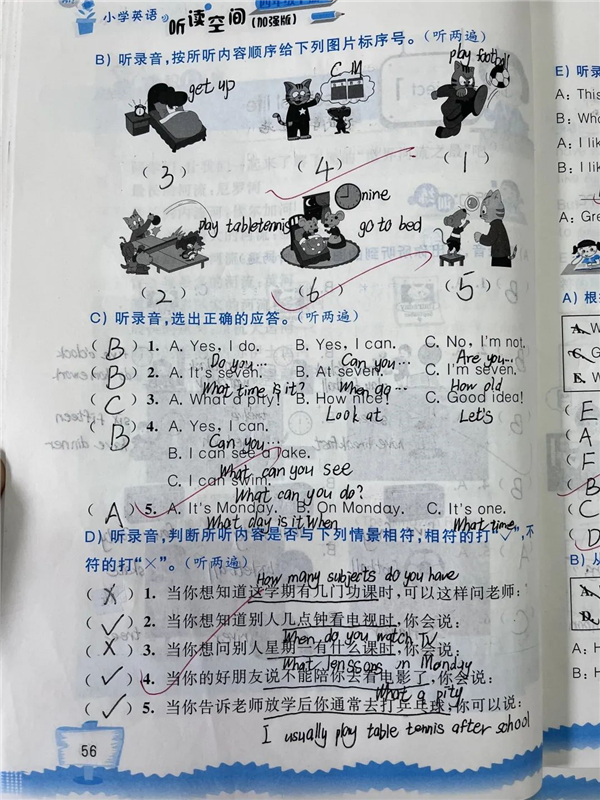 小学英语
听读空间(加强版)
B) 听录音,按所听内容顺序给下列图片标序号。(听两遍)
get up
C M
play football
(3) (4) (1)
play tabletennis
nine
go to bed
(2) (6) (5)
C) 听录音,选出正确的应答。(听两遍)
(B) 1. A. Yes, I do. B. Yes, I can. C. No, I'm not.
Do you... Can you... Are you...
(B) 2. A. It's seven. B. At seven. C. I'm seven.
What time is it? When do... How old
(C) 3. A. What a pity! B. How nice! C. Good idea!
Look at Let's
(B) 4. A. Yes, I can.
Can you...
B. I can see a lake.
What can you see
C. I can swim.
What can you do?
(A) 5. A. It's Monday. B. On Monday. C. It's one.
What day is it When What time
D) 听录音,判断所听内容是否与下列情景相符,相符的打"✓",不
符的打"×"。(听两遍)
How many subjects do you have
(×) 1. 当你想知道这学期有几门功课时,可以这样问老师:
(✓) 2. 当你想知道别人几点钟看电视时,你会说:
When do you watch TV
(×) 3. 当你想问别人星期一有什么课时,你会说:
What lenssons in Monday
(✓) 4. 当你的好朋友说不能陪你去看电影了,你会说:
What a pity
(✓) 5. 当你告诉老师放学后你通常去打乒乓球,你可以说:
I usually play table tennis after school
56
E) 听录
A: This
B: Who
A: I lik
B: I lik
A: Gre
A) 根
A. W
C. G
E. W
E
A
F
B
C
D
B) 从
A: H
B: H